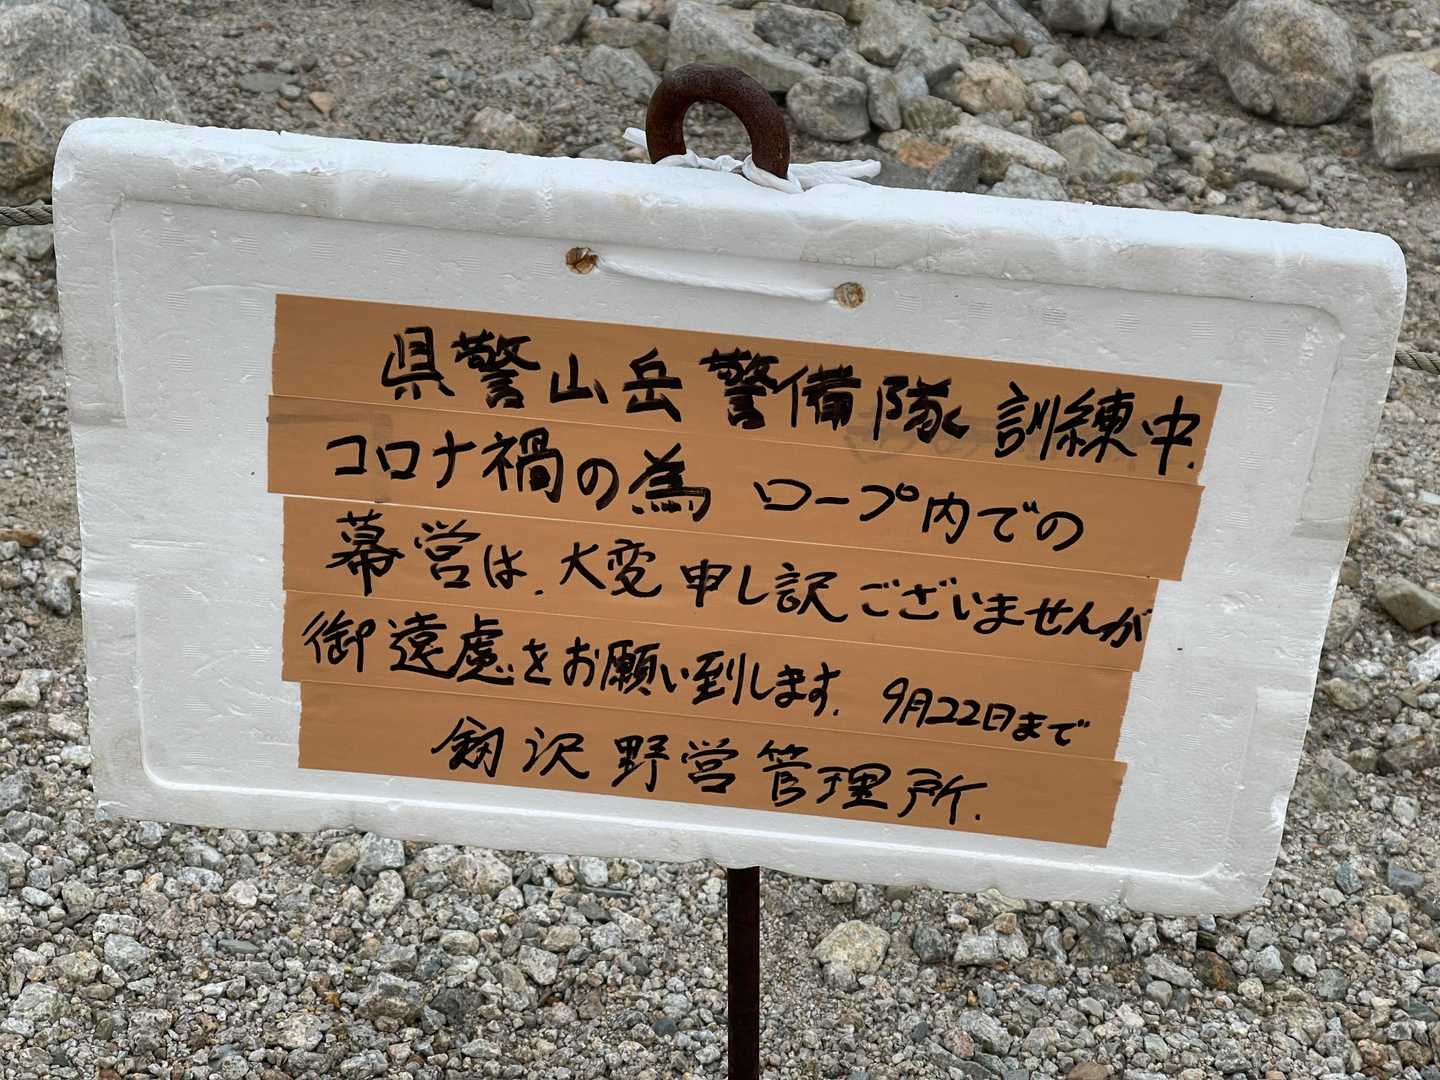 県警山岳警備隊訓練中.
コロナ禍の為 ロープ内での
幕営は、大変申し訳ございませんが
御遠慮をお願い到します. 9月22日まで
剱沢野営管理所.